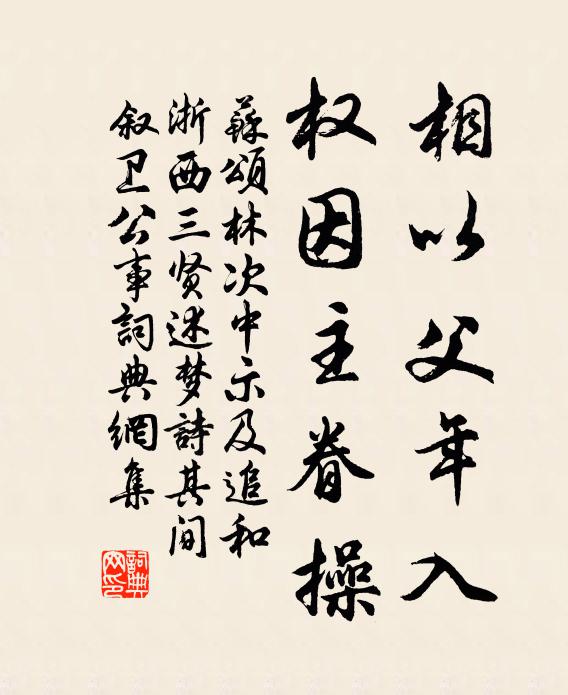 相以父年入
权因主眷操
蘇頌林次中示及追和
浙西三贤述梦詩其间
叙卫公事詞典網集
詞典
网印